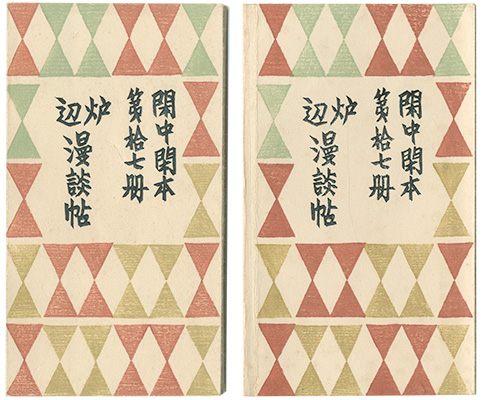 閑中閑本
第拾七冊
炉辺漫談帖
閑中閑本
第拾七冊
炉辺漫談帖